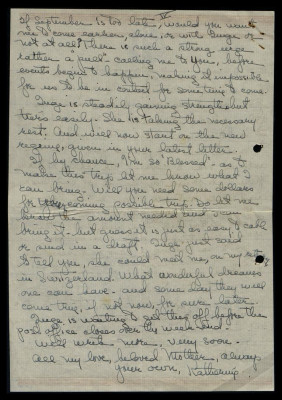 IV
of September is too late, would you want
me to come earlier, alone, or with Inge or
not at all? There is such a strong urge
rather a pull - calling me to you, before
events begin to happen, making it impossible
for us to be in contact for sometime to come.
Inge is steadily gaining strength but
tires easily. She is taking the necessary
rest. And will now start on the new
regime, given in your latest letter.
If by chance, I'm so "Blessed" - as to
make this trip let me know what I
can bring. Will you need some dollars
for coming possible trip. So let me
amount needed and I can
bring it - but guess it is just as easy to cash
or send in a draft. Inge just said
to tell you, she could meet me, on my return
in Switzerland. What wonderful dreams
one can have - and some day they will
come true, if not now, for sure later.
Inge is waiting to get this off before the
post office closes over the week end.
Will write more, very soon.
All my love, beloved Mother, always
your own, Katherine